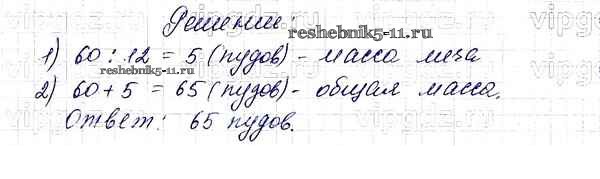 Решение:
reshebnik5-11.ru
1) 60 : 12 = 5 (пудов) - масса меча
reshebnik5-11.ru
2) 60 + 5 = 65 (пудов) - общая масса.
Ответ: 65 пудов.